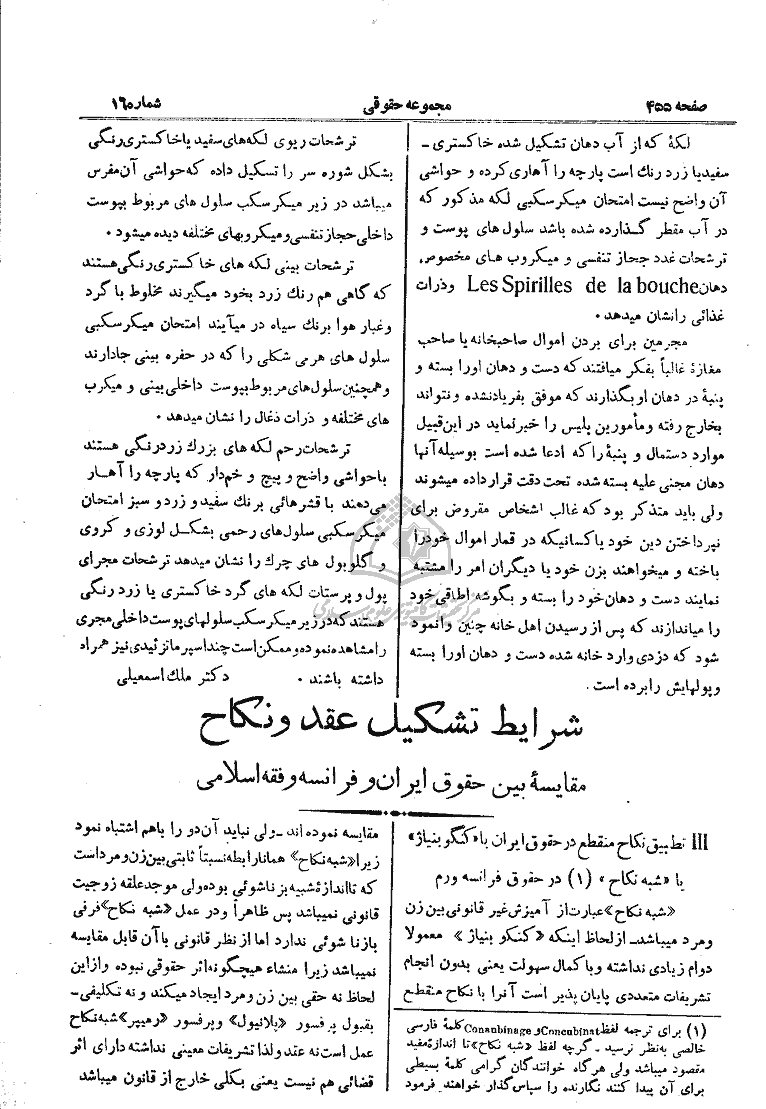 صفحه ۴۵۵
مجموعه حقوقی
شماره ۱۶۰
لکهٔ که از آب دهان تشکیل شده خاکستری ـ
سفید یا زرد رنك است پارچه را آهاری کرده و حواشی
آن واضح نیست امتحان میکرسکپی لکه مذکور که
در آب مقطر گذارده شده باشد سلول های پوست و
ترشحات غدد جحاز تنفسی و میکروب های مخصوص
دهان Les Spirilles de la bouche وذرات
غذائی را نشان میدهد ۰
مجرمین برای بردن اموال صاحبخانه یا صاحب
مغازهٔ غالباً بفکر میافتند که دست و دهان اورا بسته و
پنبهٔ در دهان او بگذارند که موفق بفریادنشده و نتواند
بخارج رفته و مأمورین پلیس را خبرنماید در این قبیل
موارد دستمال و پنبهٔ را که ادعا شده است بوسیله آنها
دهان مجنی علیه بسته شده تحت دقت قرار داده میشوند
ولی باید متذکر بود که غالب اشخاص مقروض برای
نپرداختن دین خود یا کسانیکه در قمار اموال خود را
باخته و میخواهند بزن خود یا دیگران امر را مشتبه
نمایند دست و دهان خود را بسته و بگوشه اطاقی خود
را میاندازند که پس از رسیدن اهل خانه چنین وانمود
شود که دزدی وارد خانه شده دست و دهان اورا بسته
و پولهایش را برده است .
ترشحات ریوی لکه های سفید یا خاکستری رنگی
بشکل شوره سر را تسکیل داده که حواشی آن مفرس
میباشد در زیر میکرسکب سلول های مربوط بپوست
داخلی حجاز تنفسی و میکروبهای مختلفه دیده میشود ۰
ترشحات بینی لکه های خاکستری رنگی هستند
که گاهی هم رنك زرد بخود میگیرند مخلوط با گرد
و غبار هوا برنك سیاه در میآیند امتحان میکرسکبی
سلول های هرمی شکلی را که در حفره بینی جادارند
و همچنین سلول های مربوط بپوست داخلی بینی و میکرب
های مختلفه و ذرات ذغال را نشان میدهد ۰
ترشحات رحم لکه های بزرك زرد رنگی هستند
با حواشی واضح و پیچ و خم دار که پارچه را آهار
می دهند با قشر هائی برنك سفید و زرد و سبز امتحان
میکرسکبی سلول های رحمی بشکل لوزی و کروی
و گلوبول های چرك را نشان میدهد ترشحات مجرای
پول و پرستات لکه های گرد خاکستری یا زرد رنگی
هستند که در زیر میکرسکب سلولهای پوست داخلی مجری
را مشاهده نموده و ممکن است چند اسپرماتزئیدی نیز همراه
داشته باشند ۰ دکتر ملك اسمعیلی
شرایط تشکیل عقد ونکاح
مقایسهٔ بین حقوق ایران و فرانسه وفقه اسلامی
III تطبیق نکاح منقطع در حقوق ایران با «کنگوبنیاژ»
یا «شبه نکاح» (۱) در حقوق فرانسه ورم
«شبه نکاح» عبارت از آمیزش غیر قانونی بین زن
ومرد میباشد ـ از لحاظ اینکه «کنکوبنیاژ» معمولا
دوام زیادی نداشته و با کمال سهولت یعنی بدون انجام
تشریفات متعددی پایان پذیر است آنرا با نکاح منقطع
(۱) برای ترجمه لفظ Concubinat و Conaubinage کلمهٔ فارسی
خالصی به نظر نرسید ـ گرچه لفظ «شبه نکاح» تا اندازهٔ مفید
مقصود میباشد ولی هرگاه خوانندگان گرامی کلمهٔ بسیطی
برای آن پیدا کنند نگارنده را سپاس گذار خواهند فرمود
مقایسه نموده اند ـ ولی نباید آن دو را باهم اشتباه نمود
زیرا «شبه نکاح» همانا رابطه نسبتاً ثابتی بین زن و مرد است
که تا اندازهٔ شبیه بزناشوئی بوده ولی موجد علقه زوجیت
قانونی نمیباشد پس ظاهراً و در عمل «شبه نکاح» فرقی
با زنا شوئی ندارد اما از نظر قانونی با آن قابل مقایسه
نمیباشد زیرا منشاء هیچگونه اثر حقوقی نبوده و از این
لحاظ نه حقی بین زن ومرد ایجاد میکند و نه تکلیفی ـ
بقبول پرفسور «پلانیول» و پرفسور «رمیپر» شبه نکاح
عمل است نه عقد و لذا تشریفات معینی نداشته دارای اثر
قضائی هم نیست یعنی بکلی خارج از قانون میباشد